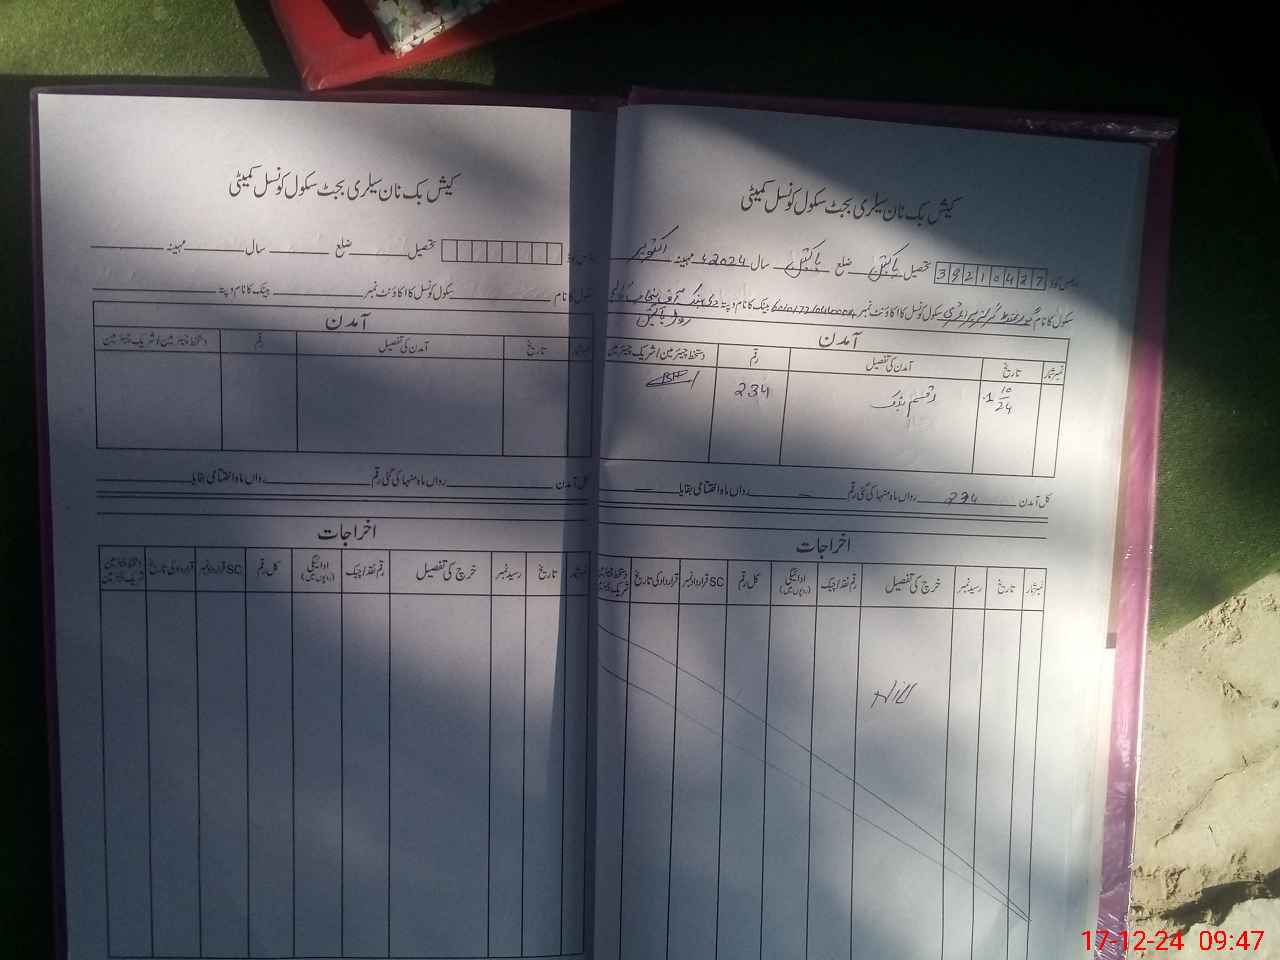 کیش بک نان سیلری بجٹ سکول کونسل کمیٹی
ایمس کوڈ 39210427 تحصیل پاکپتن ضلع پاکپتن سال 2024ء مہینہ اکتوبر
سکول کا نام گورنمنٹ گرلز سکول کونسل کا اکاؤنٹ نمبر بینک کا نام و پتہ دی بینک آف پنجاب
روڈ پاکپتن
آمدن
نمبر شمار تاریخ آمدن کی تفصیل رقم دستخط چیئرمین / شریک چیئرمین
1-10-24 رقم بنک 234
کل آمدن 234 رواں ماہ منہا کی گئی رقم — رواں ماہ اختتامی بقایا —
اخراجات
نمبر شمار تاریخ رسید نمبر خرچ کی تفصیل رقم نقد / چیک ادائیگی (روپوں میں) کل رقم SC قرارداد نمبر قرارداد کی تاریخ دستخط چیئرمین شریک چیئرمین
Nill
کیش بک نان سیلری بجٹ سکول کونسل کمیٹی
تحصیل ضلع سال مہینہ
سکول کا نام سکول کونسل کا اکاؤنٹ نمبر بینک کا نام و پتہ
آمدن
تاریخ آمدن کی تفصیل رقم دستخط چیئرمین / شریک چیئرمین
کل آمدن رواں ماہ منہا کی گئی رقم رواں ماہ اختتامی بقایا
اخراجات
تاریخ رسید نمبر خرچ کی تفصیل رقم نقد / چیک ادائیگی (روپوں میں) کل رقم SC قرارداد نمبر قرارداد کی تاریخ دستخط چیئرمین شریک چیئرمین
17-12-24 09:47